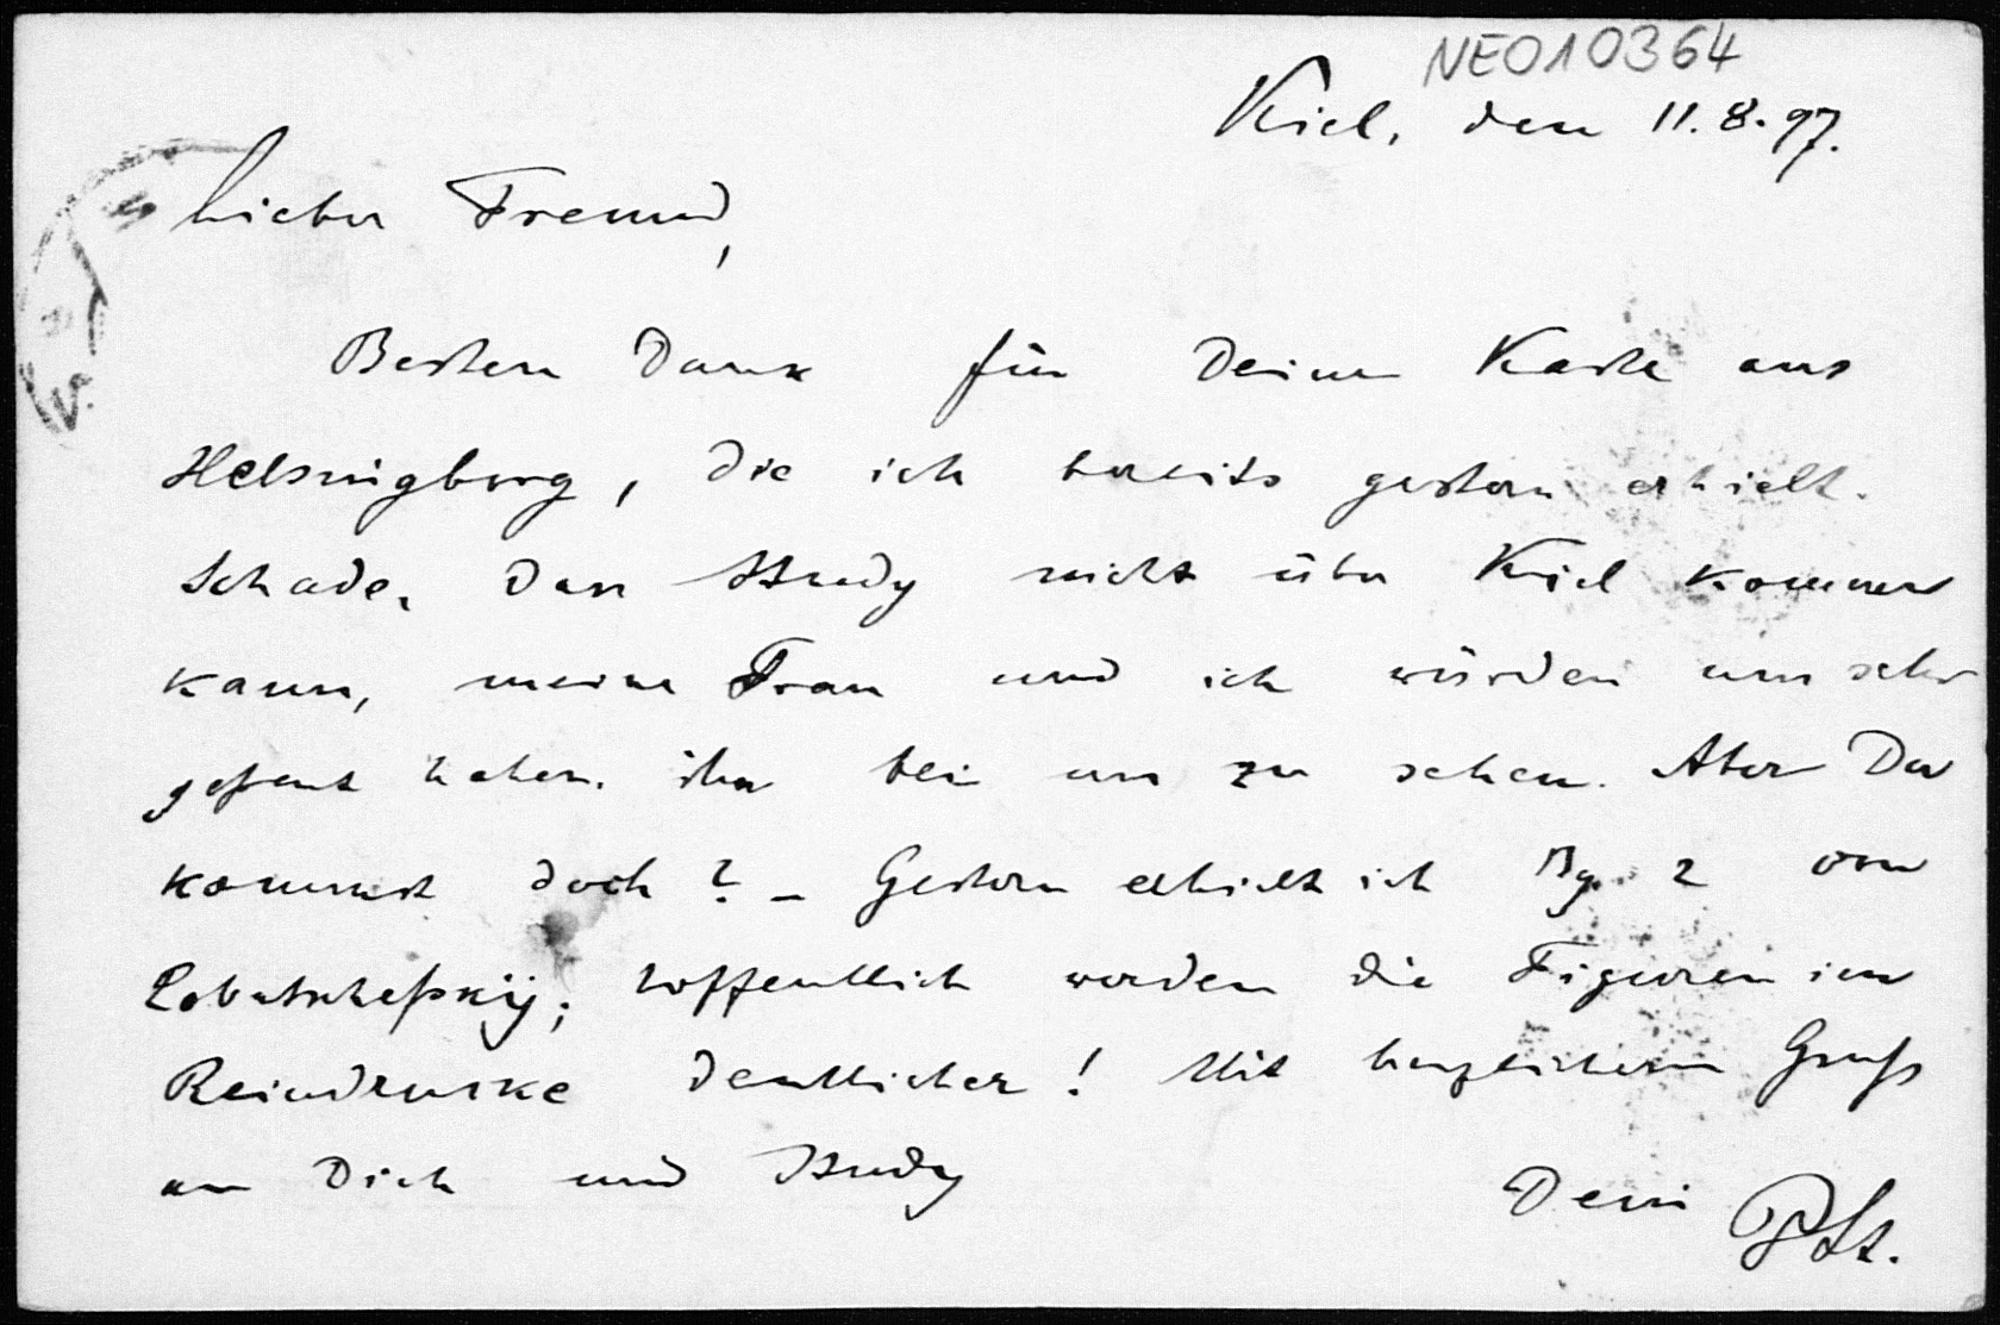 NE010364
Kiel, den 11.8.97.
Lieber Freund,
Besten Dank für Deine Karte aus
Helsingborg, die ich bereits gestern erhielt.
Schade, dass Study nicht über Kiel kommen
kann, meine Frau und ich würden uns sehr
gefreut haben, ihn bei uns zu sehen. Aber Du
kommst doch? – Gestern erhielt ich Bg. 2 vom
Lobatschefskij; hoffentlich werden die Figuren im
Reindrucke deutlicher! Mit herzlichem Gruss
an Dich und Study
Dein PSt.